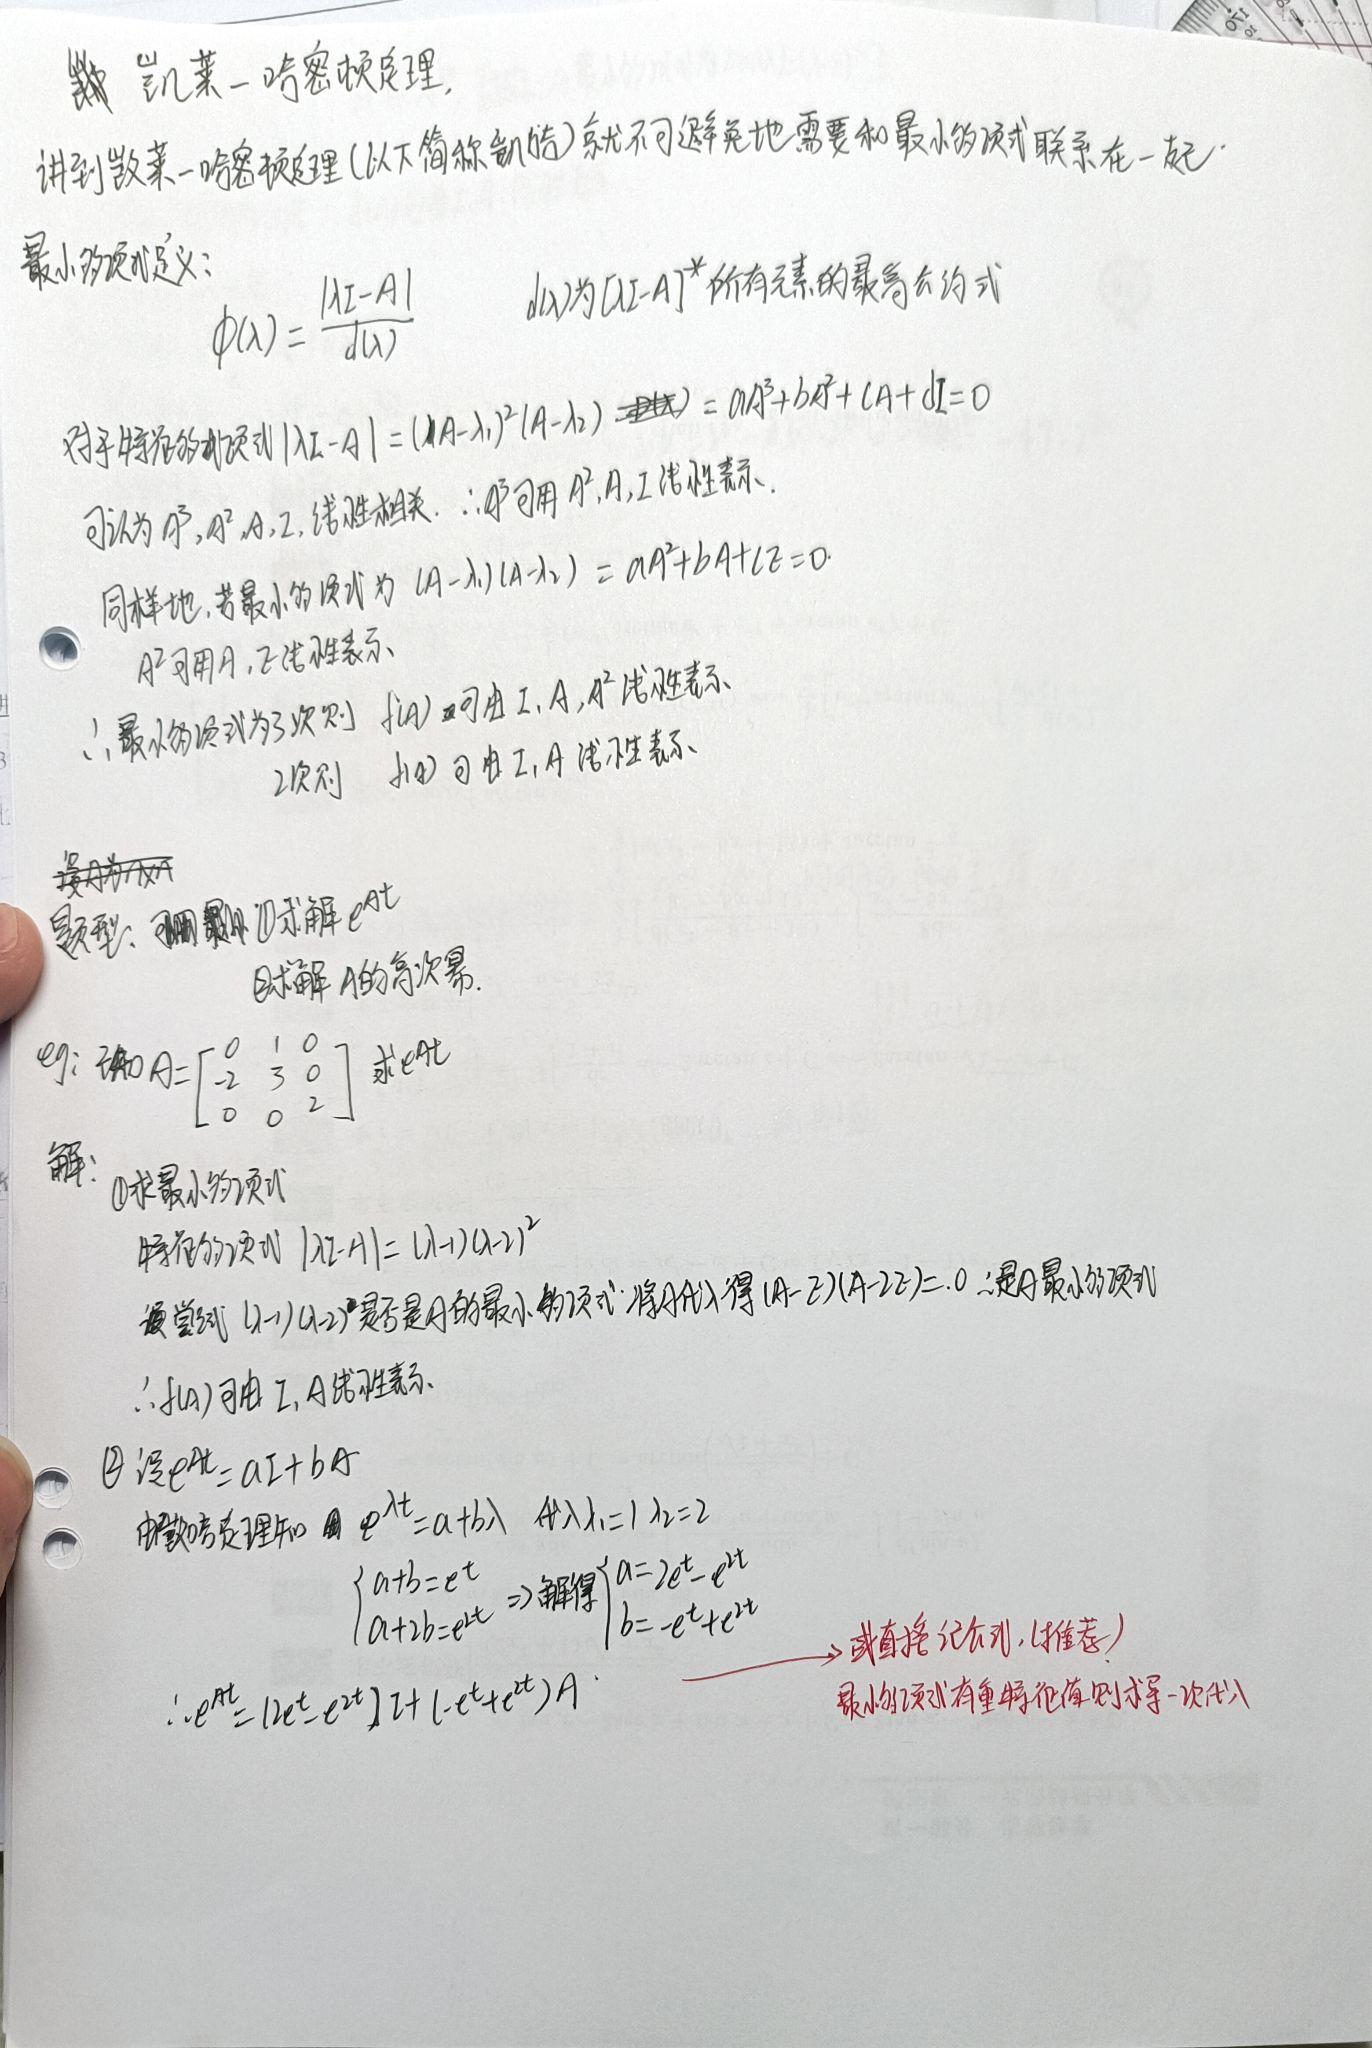 凯莱-哈密顿定理.
讲到凯莱-哈密顿定理(以下简称凯哈)就不可避免地需要和最小多项式联系在一起.
最小多项式定义:
φ(λ) = |λI-A| / d(λ)  d(λ)为[λI-A]*所有元素的最高公约式
对于特征多项式|λI-A| = (A-λ₁)²(A-λ₂) = aA³+bA²+cA+dI=0
可认为A³,A²,A,I,线性相关.∴A³可用A²,A,I线性表示.
同样地,若最小多项式为 (A-λ₁)(A-λ₂) = aA²+bA+cI=0.
A²可用A,I线性表示
∴最小多项式为3次则 f(A)可由I,A,A²线性表示
2次则 f(A)可由I,A线性表示
题型: ①求解e^{At}
②求解A的高次幂.
eg: 已知A=[0 1 0
-2 3 0
0 0 2] 求e^{At}
解:
①求最小多项式
特征多项式 |λI-A| = (λ-1)(λ-2)²
尝试(λ-1)(λ-2)是否是A的最小多项式.将A代入得(A-I)(A-2I)=0 ∴是A最小多项式
∴f(A)可由I,A线性表示
② 设e^{At}=aI+bA
由凯哈定理知 e^{λt}=a+bλ 代入λ₁=1 λ₂=2
{a+b=e^t
a+2b=e^{2t} ⇒解得{a=2e^t-e^{2t}
b=-e^t+e^{2t}
∴e^{At}=(2e^t-e^{2t})I+(-e^t+e^{2t})A.
→或直接记公式.(推荐)
最小多项式有重特征值则求导一次代入